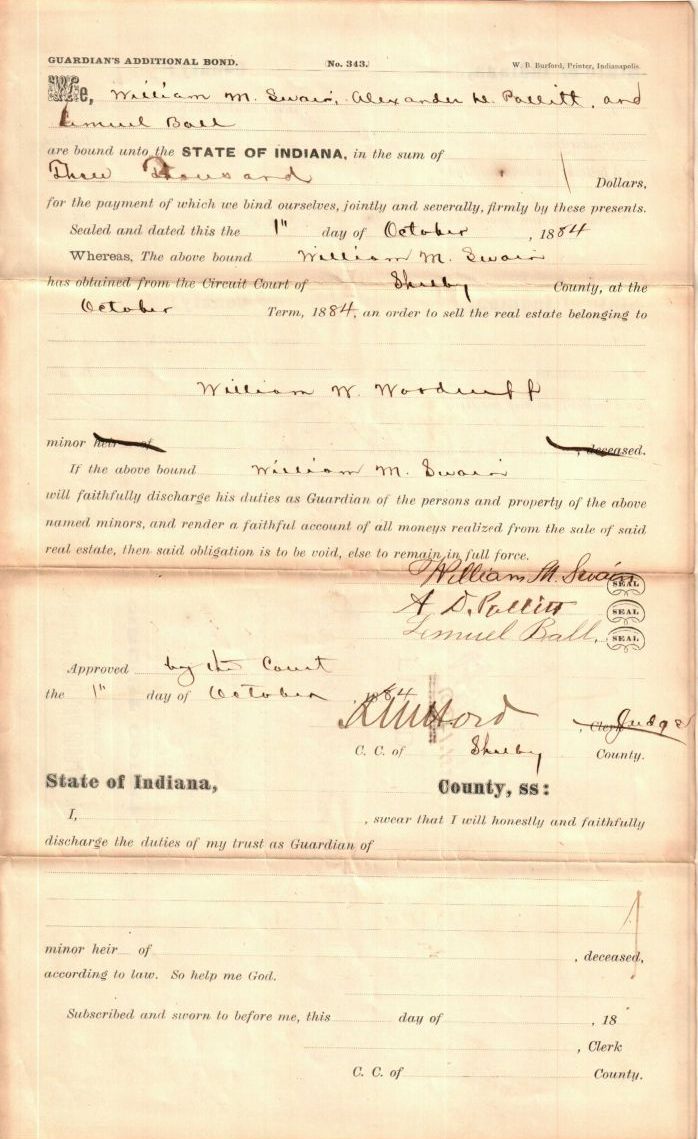 GUARDIAN'S ADDITIONAL BOND. (No. 343.) W. B. Burford, Printer, Indianapolis.
We, William M. Swain, Alexander D. Pollitt, and
Lemuel Ball
are bound unto the STATE OF INDIANA, in the sum of
Three Thousand Dollars,
for the payment of which we bind ourselves, jointly and severally, firmly by these presents.
Sealed and dated this the 1" day of October, 1884
Whereas, The above bound William M. Swain
has obtained from the Circuit Court of Shelby County, at the
October Term, 1884, an order to sell the real estate belonging to
William W. Woodruff
minor heir of , deceased.
If the above bound William M. Swain
will faithfully discharge his duties as Guardian of the persons and property of the above
named minors, and render a faithful account of all moneys realized from the sale of said
real estate, then said obligation is to be void, else to remain in full force.
William M. Swain SEAL
A. D. Pollitt SEAL
Lemuel Ball, SEAL
Approved by the Court
the 1" day of October, 1884
, Clerk Judge
C. C. of Shelby County.
State of Indiana, County, ss:
I, , swear that I will honestly and faithfully
discharge the duties of my trust as Guardian of
minor heir of , deceased,
according to law. So help me God.
Subscribed and sworn to before me, this day of , 18
, Clerk
C. C. of County.